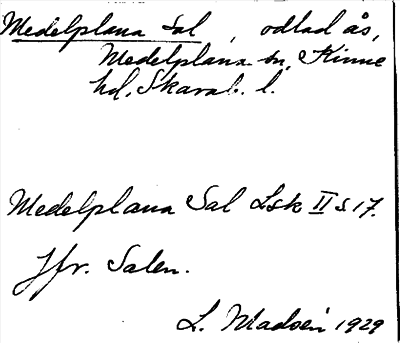 Medelplana Sal, odlad ås,
Medelplana sn, Kinne
hd, Skarab. l.
Medelplana Sal Lsk II s 17.
Jfr. Salen.
L. Madsén 1929